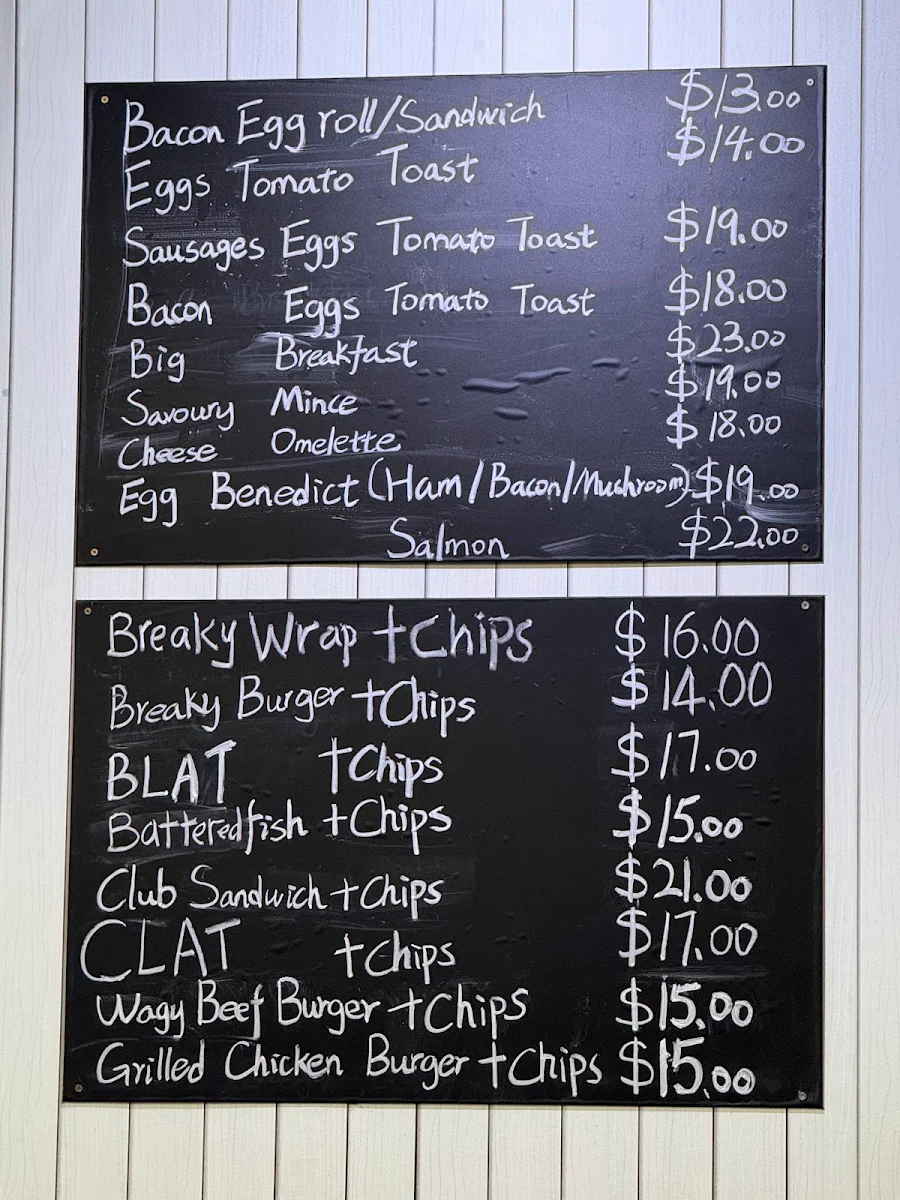 Bacon Egg roll/Sandwich $13.00
Eggs Tomato Toast $14.00
Sausages Eggs Tomato Toast $19.00
Bacon Eggs Tomato Toast $18.00
Big Breakfast $23.00
Savoury Mince $19.00
Cheese Omelette $18.00
Egg Benedict (Ham/Bacon/Mushroom) $19.00
Salmon $22.00
Breaky Wrap +Chips $16.00
Breaky Burger +Chips $14.00
BLAT +Chips $17.00
Battered fish +Chips $15.00
Club Sandwich +Chips $21.00
CLAT +Chips $17.00
Wagy Beef Burger +Chips $15.00
Grilled Chicken Burger +Chips $15.00